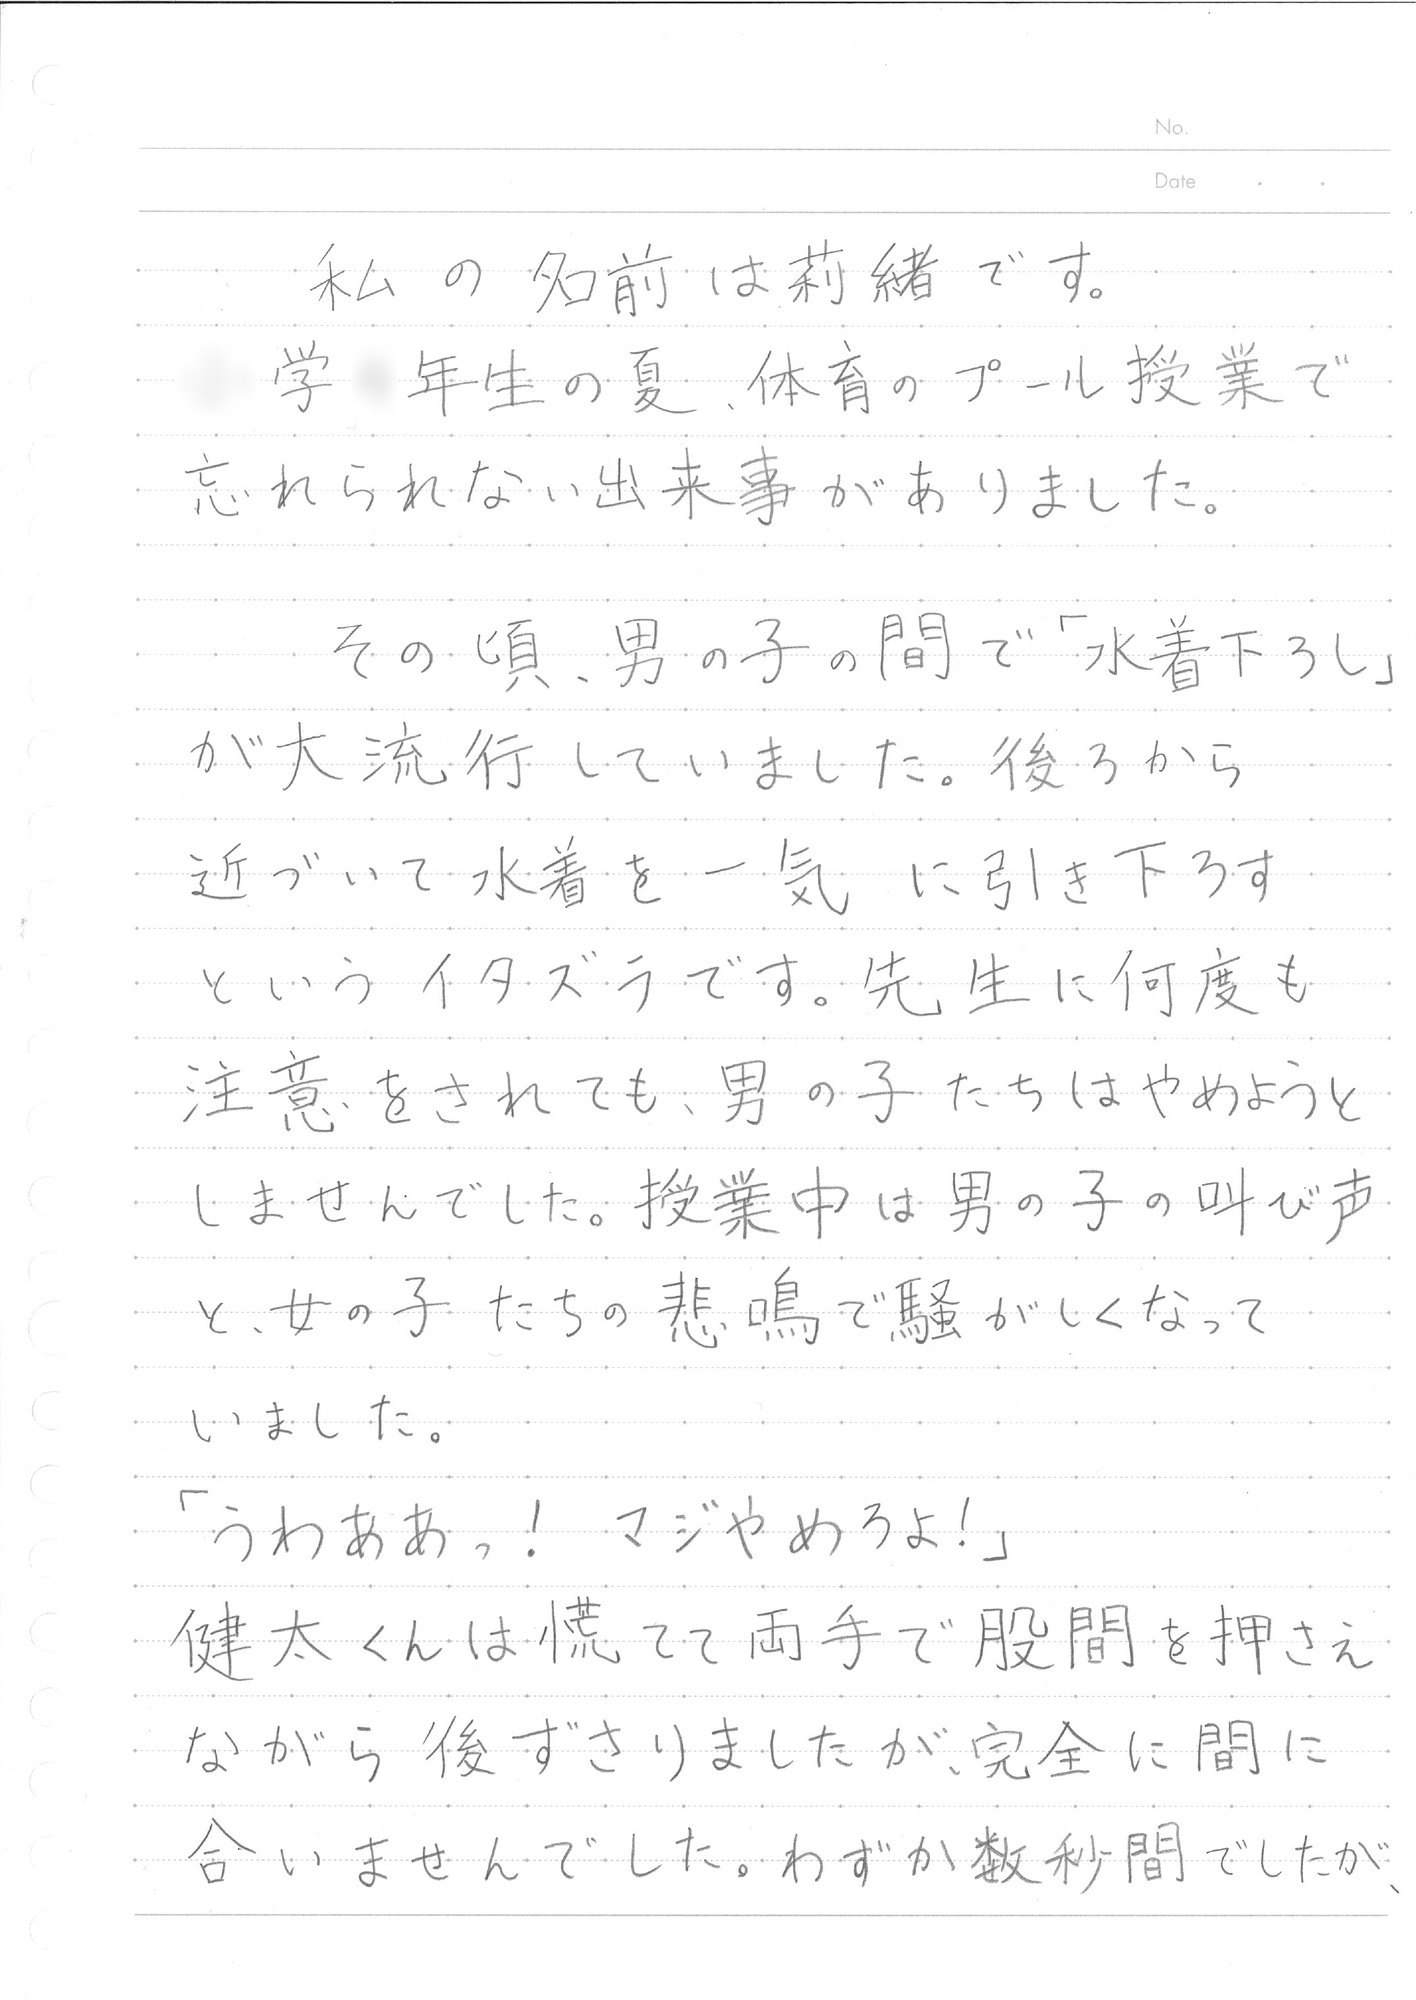 No.
Date
私の名前は莉緒です。
学 年生の夏、体育のプール授業で
忘れられない出来事がありました。
その頃、男の子の間で「水着下ろし」
が大流行していました。後ろから
近づいて水着を一気に引き下ろす
というイタズラです。先生に何度も
注意をされても、男の子たちはやめようと
しませんでした。授業中は男の子の叫び声
と、女の子たちの悲鳴で騒がしくなって
いました。
「うわああっ! マジやめろよ!」
健太くんは慌てて両手で股間を押さえ
ながら後ずさりましたが、完全に間に
合いませんでした。わずか数秒間でしたが、